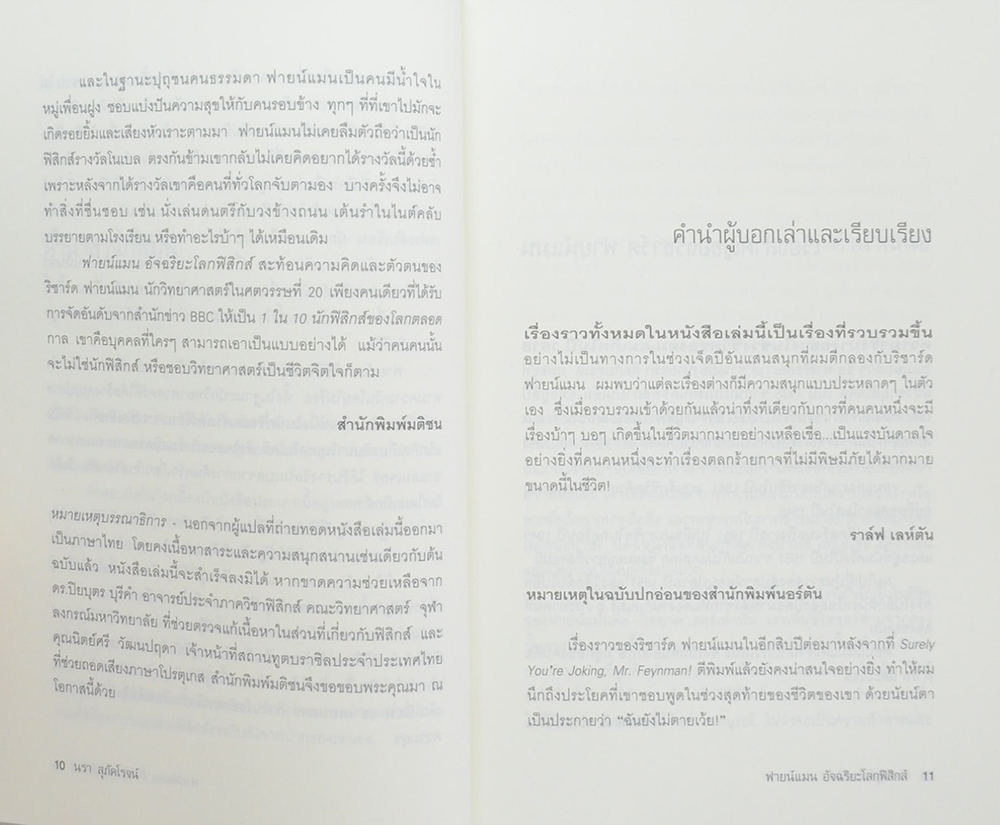 และในฐานะปุถุชนคนธรรมดา ฟายน์แมนเป็นคนมีน้ำใจใน
หมู่เพื่อนฝูง ชอบแบ่งปันความสุขให้กับคนรอบข้าง ทุกๆ ที่ที่เขาไปมักจะ
เกิดรอยยิ้มและเสียงหัวเราะตามมา ฟายน์แมนไม่เคยลืมตัวถือว่าเป็นนัก
ฟิสิกส์รางวัลโนเบล ตรงกันข้ามเขากลับไม่เคยคิดอยากได้รางวัลนี้ด้วยซ้ำ
เพราะหลังจากได้รางวัลเขาคือคนที่ทั่วโลกจับตามอง บางครั้งจึงไม่อาจ
ทำสิ่งที่ชื่นชอบ เช่น นั่งเล่นดนตรีกับวงข้างถนน เต้นรำในไนต์คลับ
บรรยายตามโรงเรียน หรือทำอะไรบ้าๆ ได้เหมือนเดิม
ฟายน์แมน อัจฉริยะโลกฟิสิกส์ สะท้อนความคิดและตัวตนของ
ริชาร์ด ฟายน์แมน นักวิทยาศาสตร์ในศตวรรษที่ 20 เพียงคนเดียวที่ได้รับ
การจัดอันดับจากสำนักข่าว BBC ให้เป็น 1 ใน 10 นักฟิสิกส์ของโลกตลอด
กาล เขาคือบุคคลที่ใครๆ สามารถเอาเป็นแบบอย่างได้ แม้ว่าคนคนนั้น
จะไม่ใช่นักฟิสิกส์ หรือชอบวิทยาศาสตร์เป็นชีวิตจิตใจก็ตาม
สำนักพิมพ์มติชน
หมายเหตุบรรณาธิการ - นอกจากผู้แปลที่ถ่ายทอดหนังสือเล่มนี้ออกมา
เป็นภาษาไทย โดยคงเนื้อหาสาระและความสนุกสนานเช่นเดียวกับต้น
ฉบับแล้ว หนังสือเล่มนี้จะสำเร็จลงมิได้ หากขาดความช่วยเหลือจาก
ดร.ปิยบุตร บุรีคำ อาจารย์ประจำภาควิชาฟิสิกส์ คณะวิทยาศาสตร์ จุฬา
ลงกรณ์มหาวิทยาลัย ที่ช่วยตรวจแก้เนื้อหาในส่วนที่เกี่ยวกับฟิสิกส์ และ
คุณนิตย์ศรี วัฒนปฤดา เจ้าหน้าที่สถานทูตบราซิลประจำประเทศไทย
ที่ช่วยถอดเสียงภาษาโปรตุเกส สำนักพิมพ์มติชนจึงขอขอบพระคุณมา ณ
โอกาสนี้ด้วย
10 นรา สุภัคโรจน์
คำนำผู้บอกเล่าและเรียบเรียง
เรื่องราวทั้งหมดในหนังสือเล่มนี้เป็นเรื่องที่รวบรวมขึ้น
อย่างไม่เป็นทางการในช่วงเจ็ดปีอันแสนสนุกที่ผมตีกลองกับริชาร์ด
ฟายน์แมน ผมพบว่าแต่ละเรื่องต่างก็มีความสนุกแบบประหลาดๆ ในตัว
เอง ซึ่งเมื่อรวบรวมเข้าด้วยกันแล้วน่าทึ่งทีเดียวกับการที่คนคนหนึ่งจะมี
เรื่องบ้าๆ บอๆ เกิดขึ้นในชีวิตมากมายอย่างเหลือเชื่อ...เป็นแรงบันดาลใจ
อย่างยิ่งที่คนคนหนึ่งจะทำเรื่องตลกร้ายกาจที่ไม่มีพิษมีภัยได้มากมาย
ขนาดนี้ในชีวิต!
ราล์ฟ เลห์ตัน
หมายเหตุในฉบับปกอ่อนของสำนักพิมพ์นอร์ตัน
เรื่องราวของริชาร์ด ฟายน์แมนในอีกสิบปีต่อมาหลังจากที่ Surely
You're Joking, Mr. Feynman! ตีพิมพ์แล้วยังคงน่าสนใจอย่างยิ่ง ทำให้ผม
นึกถึงประโยคที่เขาชอบพูดในช่วงสุดท้ายของชีวิตของเขา ด้วยนัยน์ตา
เป็นประกายว่า "ฉันยังไม่ตายเว้ย!"
ฟายน์แมน อัจฉริยะโลกฟิสิกส์ 11